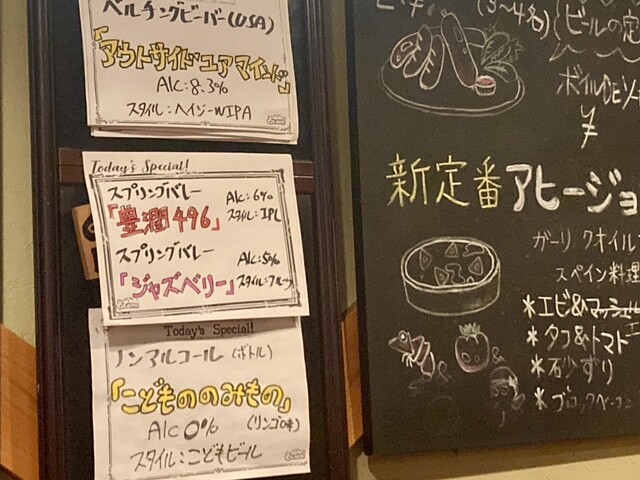 ベルチングビーバー(USA)
「アウトサイド・ユア・マインド」
Alc:8.3%
スタイル:ヘイジーWIPA
Today's Special!
スプリングバレー
「豊潤496」
Alc:6%
スタイル:IPL
スプリングバレー
「ジャズベリー」
Alc:5%
スタイル:フルーツ
Today's Special!
ノンアルコール(ボトル)
「こどもののみもの」
Alc 0%
(リンゴ味)
スタイル:こどもビール
(3~4名)
ビールの定
ボイルDEソ
新定番アヒージョ
ガーリックオイル
スペイン料理
*エビ&マッシュル
*タコ&トマト
*砂ずり
*ブロックベーコン